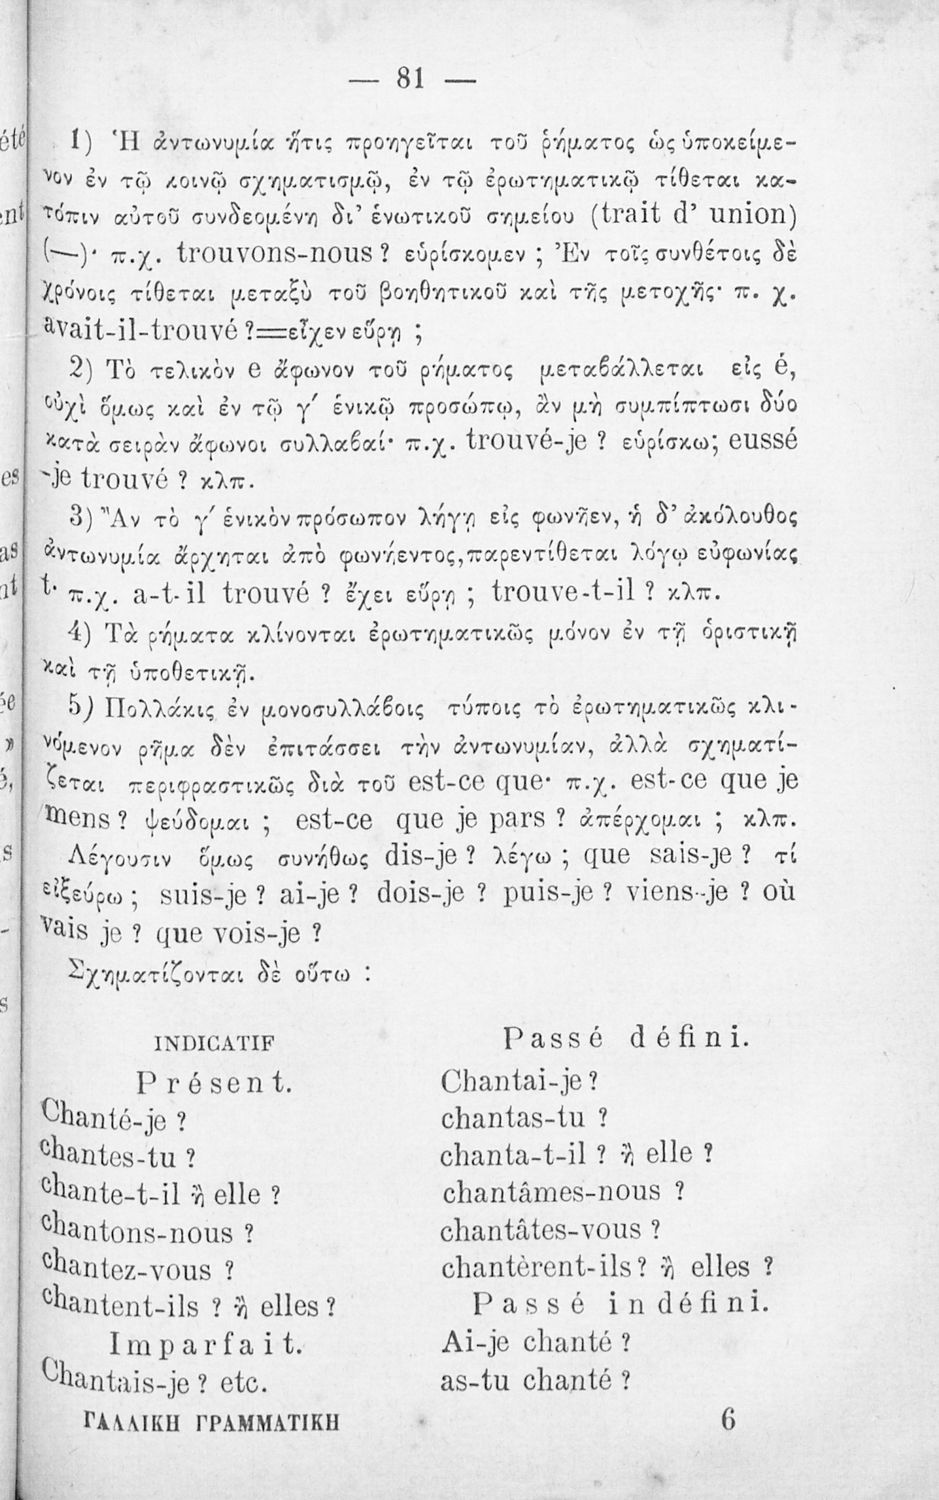 — 81 —
1) Ἡ ἀντωνυμία ἥτις προηγεῖται τοῦ ῥήματος ὡς ὑποκείμε-
νον ἐν τῷ κοινῷ σχηματισμῷ, ἐν τῷ ἐρωτηματικῷ τίθεται κα-
τόπιν αὐτοῦ συνδεομένη δι’ ἑνωτικοῦ σημείου (trait d’ union)
(—)· π.χ. trouvons-nous ? εὑρίσκομεν ; Ἐν τοῖς συνθέτοις δὲ
χρόνοις τίθεται μεταξὺ τοῦ βοηθητικοῦ καὶ τῆς μετοχῆς· π. χ.
avait-il-trouvé ?=εἶχεν εὕρῃ ;
2) Τὸ τελικὸν e ἄφωνον τοῦ ρήματος μεταβάλλεται εἰς é,
οὐχὶ ὅμως καὶ ἐν τῷ γ′ ἑνικῷ προσώπῳ, ἂν μὴ συμπίπτωσι δύο
κατὰ σειρὰν ἄφωνοι συλλαβαί· π.χ. trouvé-je ? εὑρίσκω; eussé
-je trouvé ? κλπ.
3) Ἂν τὸ γ′ ἑνικὸν πρόσωπον λήγῃ εἰς φωνῆεν, ἡ δ’ ἀκόλουθος
ἀντωνυμία ἄρχηται ἀπὸ φωνήεντος, παρεντίθεται λόγῳ εὐφωνίας
t· π.χ. a-t-il trouvé ? ἔχει εὕρῃ ; trouve-t-il ? κλπ.
4) Τὰ ρήματα κλίνονται ἐρωτηματικῶς μόνον ἐν τῇ ὁριστικῇ
καὶ τῇ ὑποθετικῇ.
5) Πολλάκις ἐν μονοσυλλάβοις τύποις τὸ ἐρωτηματικῶς κλι-
νόμενον ρῆμα δὲν ἐπιτάσσει τὴν ἀντωνυμίαν, ἀλλὰ σχηματί-
ζεται περιφραστικῶς διὰ τοῦ est-ce que· π.χ. est-ce que je
mens ? ψεύδομαι ; est-ce que je pars ? ἀπέρχομαι ; κλπ.
Λέγουσιν ὅμως συνήθως dis-je ? λέγω ; que sais-je ? τί
εἰξεύρω ; suis-je ? ai-je ? dois-je ? puis-je ? viens-je ? où
vais je ? que vois-je ?
Σχηματίζονται δὲ οὕτω :
INDICATIF
Présent.
Chanté-je ?
chantes-tu ?
chante-t-il ἢ elle ?
chantons-nous ?
chantez-vous ?
chantent-ils ? ἢ elles ?
Imparfait.
Chantais-je ? etc.
Passé défini.
Chantai-je ?
chantas-tu ?
chanta-t-il ? ἢ elle ?
chantâmes-nous ?
chantâtes-vous ?
chantèrent-ils ? ἢ elles ?
Passé indéfini.
Ai-je chanté ?
as-tu chanté ?
ΓΑΛΛΙΚΗ ΓΡΑΜΜΑΤΙΚΗ 6